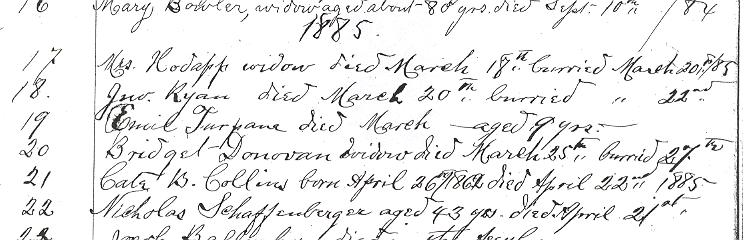 16 Mary Bowler, widow aged about 80 yrs. died Sept. 10th /84
1885.
17 Mrs. Hodapp widow died March 18th burried March 20th/85
18. Jno. Ryan died March 20th burried " 22nd
19 Emil Turpane died March — aged 9 yrs. —
20 Bridget Donovan widow died March 25th burried 27th
21 Cate B. Collins born April 26th/1862 died April 22nd 1885
22 Nicholas Schaffenberger aged 43 yrs. died April 21st "